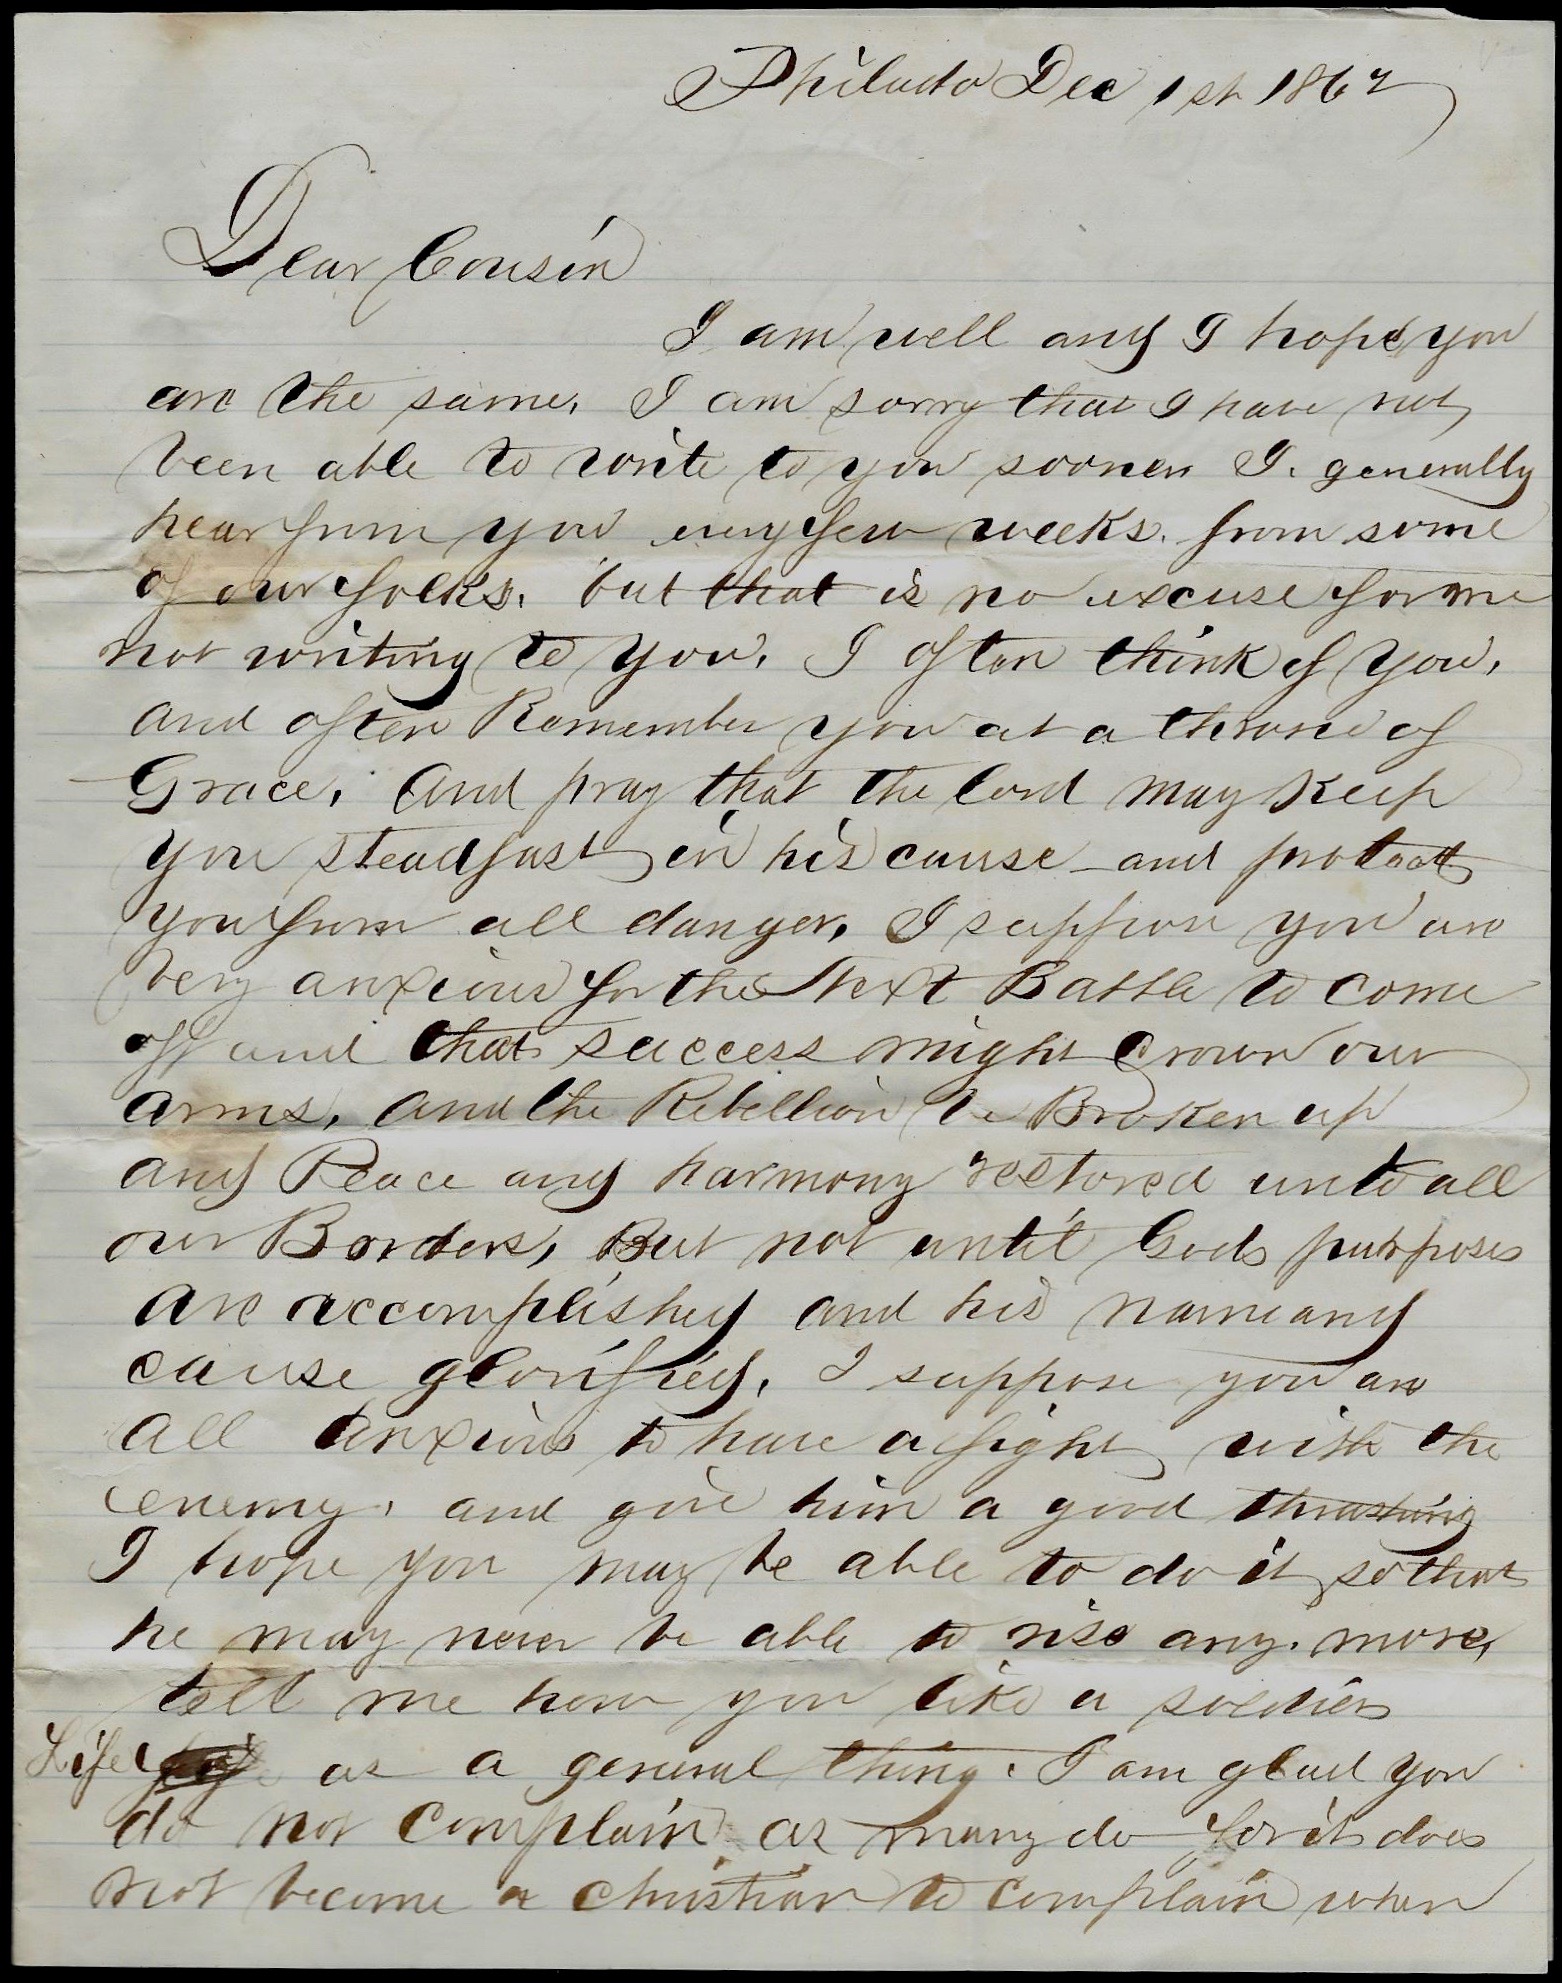 Philada Dec 1st 1862
Dear Cousin
I am well and I hope you
are the same, I am sorry that I have not
been able to write to you sooner I. generally
hear from you every few weeks. from some
of our folks. but that is no excuse for me
not writing to you, I often think of you,
and often Remember you at a throne of
Grace, and pray that the lord may keep
you steadfast in his cause and protect
you from all danger, I suppose you are
very anxious for the Next Battle to come
off and that success might crown our
arms, and the Rebellion be Broken up
and Peace and harmony restored unto all
our Borders, But not until Gods purposes
are accomplished and his name and
cause glorified, I suppose you are
all anxious to have a fight with the
enemy, and give him a good thrashing
I hope you may be able to do it so that
he may never be able to rise any. more,
tell me how you like a soldiers
Life as a general thing. I am glad you
do not complain as many do for it does
not become a christian to complain when